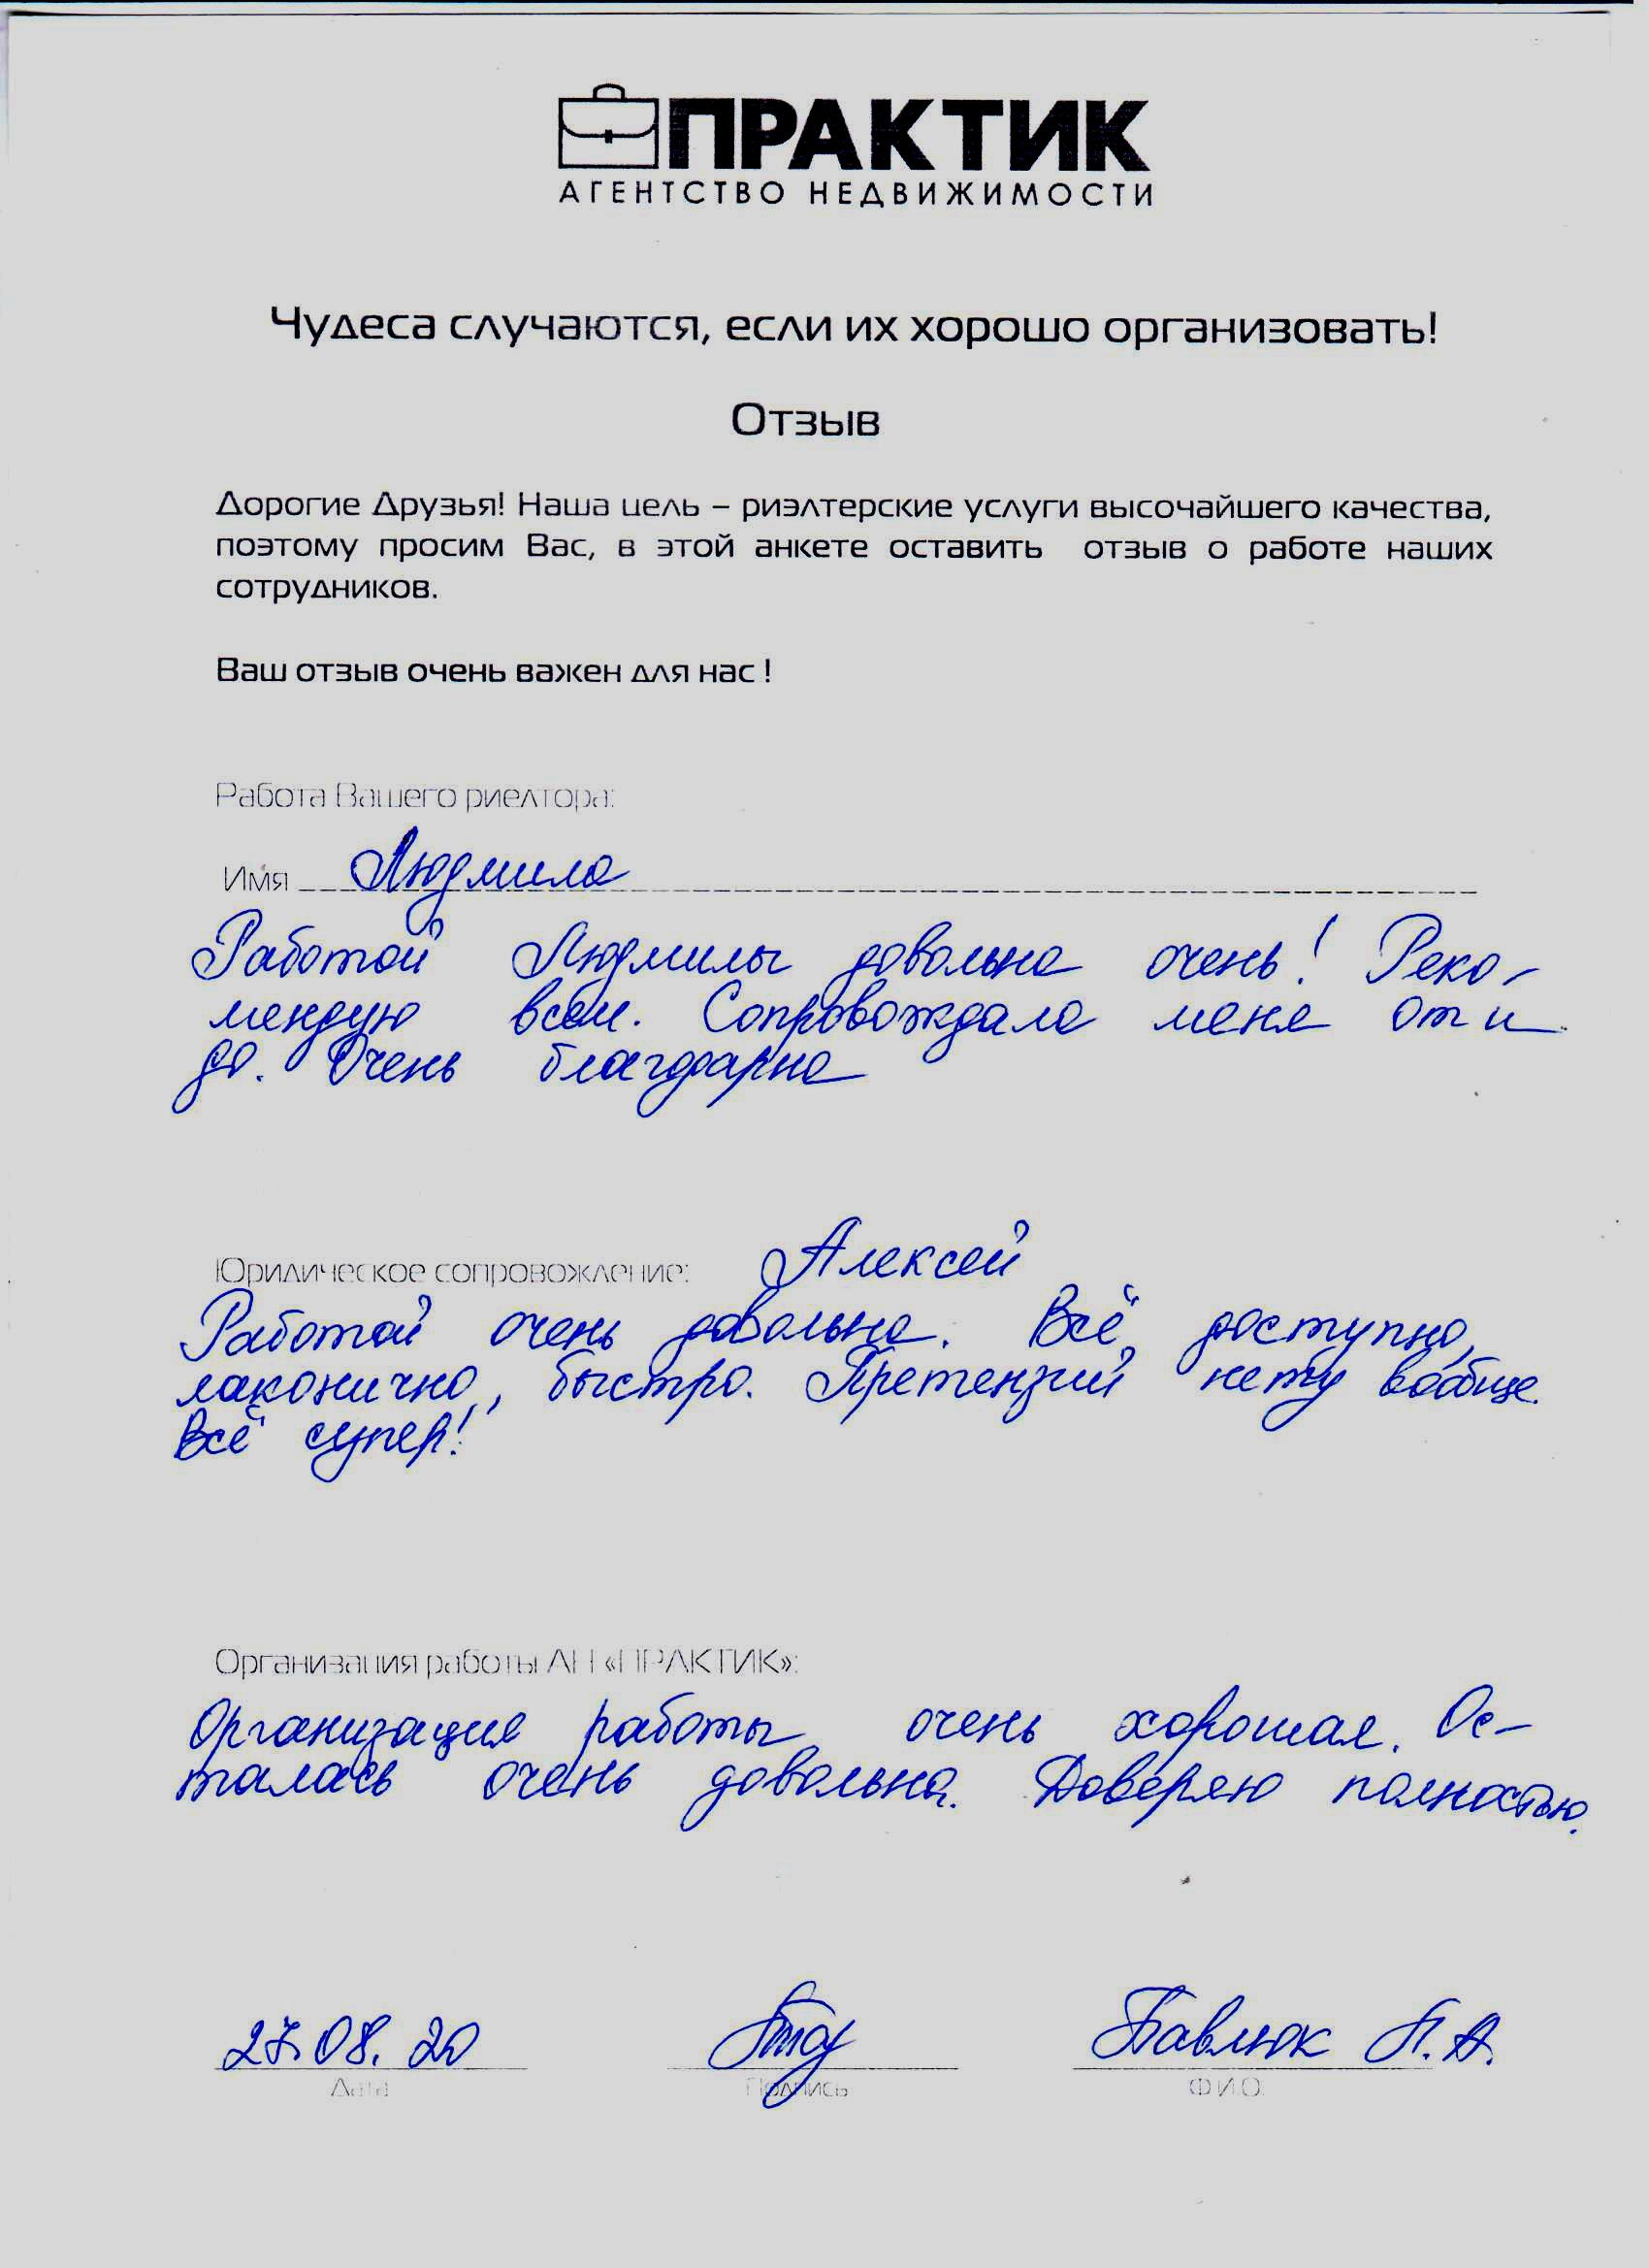 ПРАКТИК
АГЕНТСТВО НЕДВИЖИМОСТИ
Чудеса случаются, если их хорошо организовать!
Отзыв
Дорогие Друзья! Наша цель – риэлтерские услуги высочайшего качества,
поэтому просим Вас, в этой анкете оставить отзыв о работе наших
сотрудников.
Ваш отзыв очень важен для нас !
Работа Вашего риелтора:
Имя Людмила
Работой Людмилы довольна очень! Реко-
мендую всем. Сопровождала меня от и
до. Очень благодарна
Юридическое сопровождение: Алексей
Работой очень довольна. Всё доступно,
лаконично, быстро. Претензий нету вообще.
Всё супер!
Организация работы АН «ПРАКТИК»:
Организация работы очень хорошая. Ос-
талась очень довольна. Доверяю полностью.
27.08.20 Павлюк П.А.
Дата Подпись Ф.И.О.